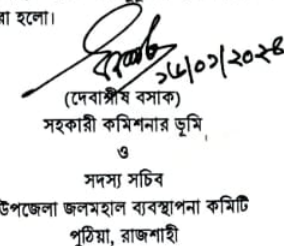 রা হলো।
২৮/০১/২০২৪
(দেবাশীষ বসাক)
সহকারী কমিশনার ভূমি
ও
সদস্য সচিব
উপজেলা জলমহাল ব্যবস্থাপনা কমিটি
পুঠিয়া, রাজশাহী